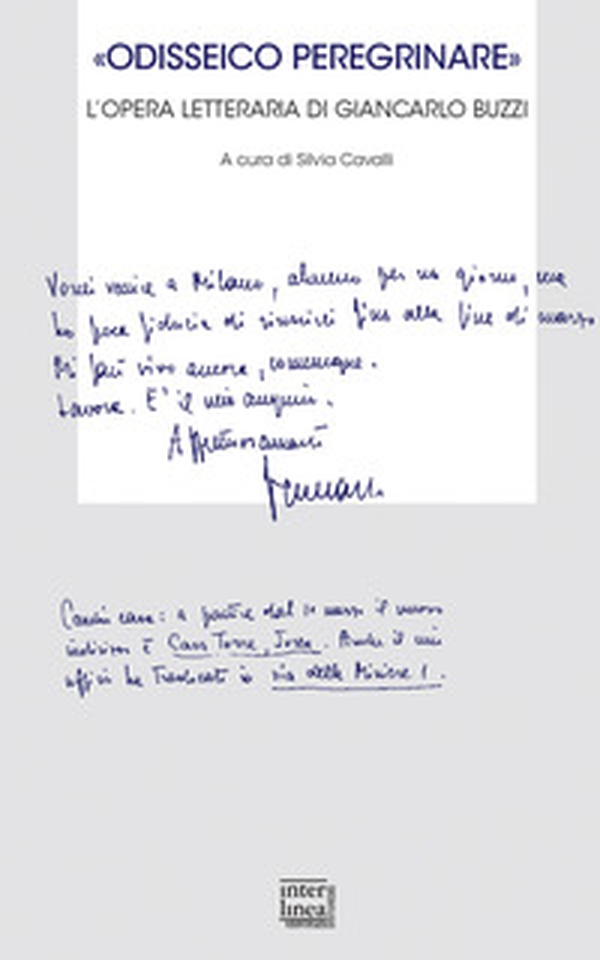 «ODISSEICO PEREGRINARE»
L'OPERA LETTERARIA DI GIANCARLO BUZZI
A cura di Silvia Cavalli
Vorrei venire a Milano, almeno per un giorno, ma
ho poca fiducia di riuscirci fino alla fine di marzo
Mi fai vivo ancora, comunque.
Lavora. E' il mio augurio.
Affettuosamente
Cambio casa: a partire dal 10 marzo il nuovo
indirizzo è Casa Torre, Ivrea. Anche il mio
ufficio ha traslocato in via delle Miniere 1.
inter
linea